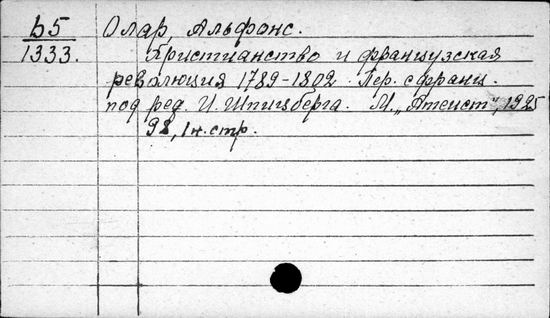 Б5 Олар, Альфонс.
1333. Христианство и французская
революция 1789-1802. Пер. с франц.
под ред. И. Шпицберга. М. „Атеист", 1925
92, 1 н. стр.